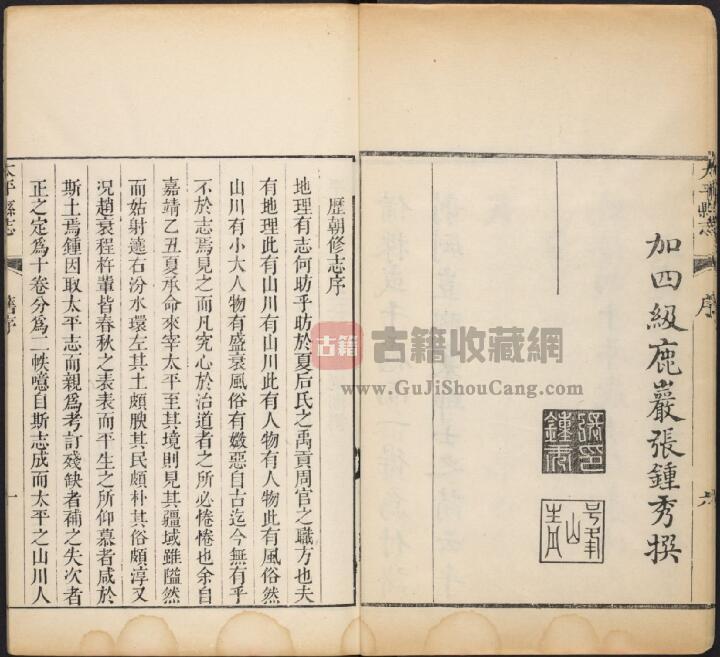 加四級鹿巖張鍾秀撰
太平縣志
序
六
歷朝修志序
地理有志何昉乎昉於夏后氏之禹貢周官之職方也夫
有地理此有山川有山川此有人物有人物此有風俗然
山川有小大人物有盛衰風俗有媺惡自古迄今無有乎
不於志焉見之而凡究心於治道者之所必惓惓也余自
嘉靖乙丑夏承命來宰太平至其境則見其疆域雖隘然
而姑射遶右汾水環左其土頗腴其民頗朴其俗頗淳又
況趙衰程杵軰皆春秋之表表而平生之所仰慕者咸於
斯土焉鍾因取太平志而親爲考訂殘缺者補之失次者
正之定爲十卷分爲二帙噫自斯志成而太平之山川人
太平縣志
舊序
一
古籍
古籍收藏網
www.GuJiShouCang.com